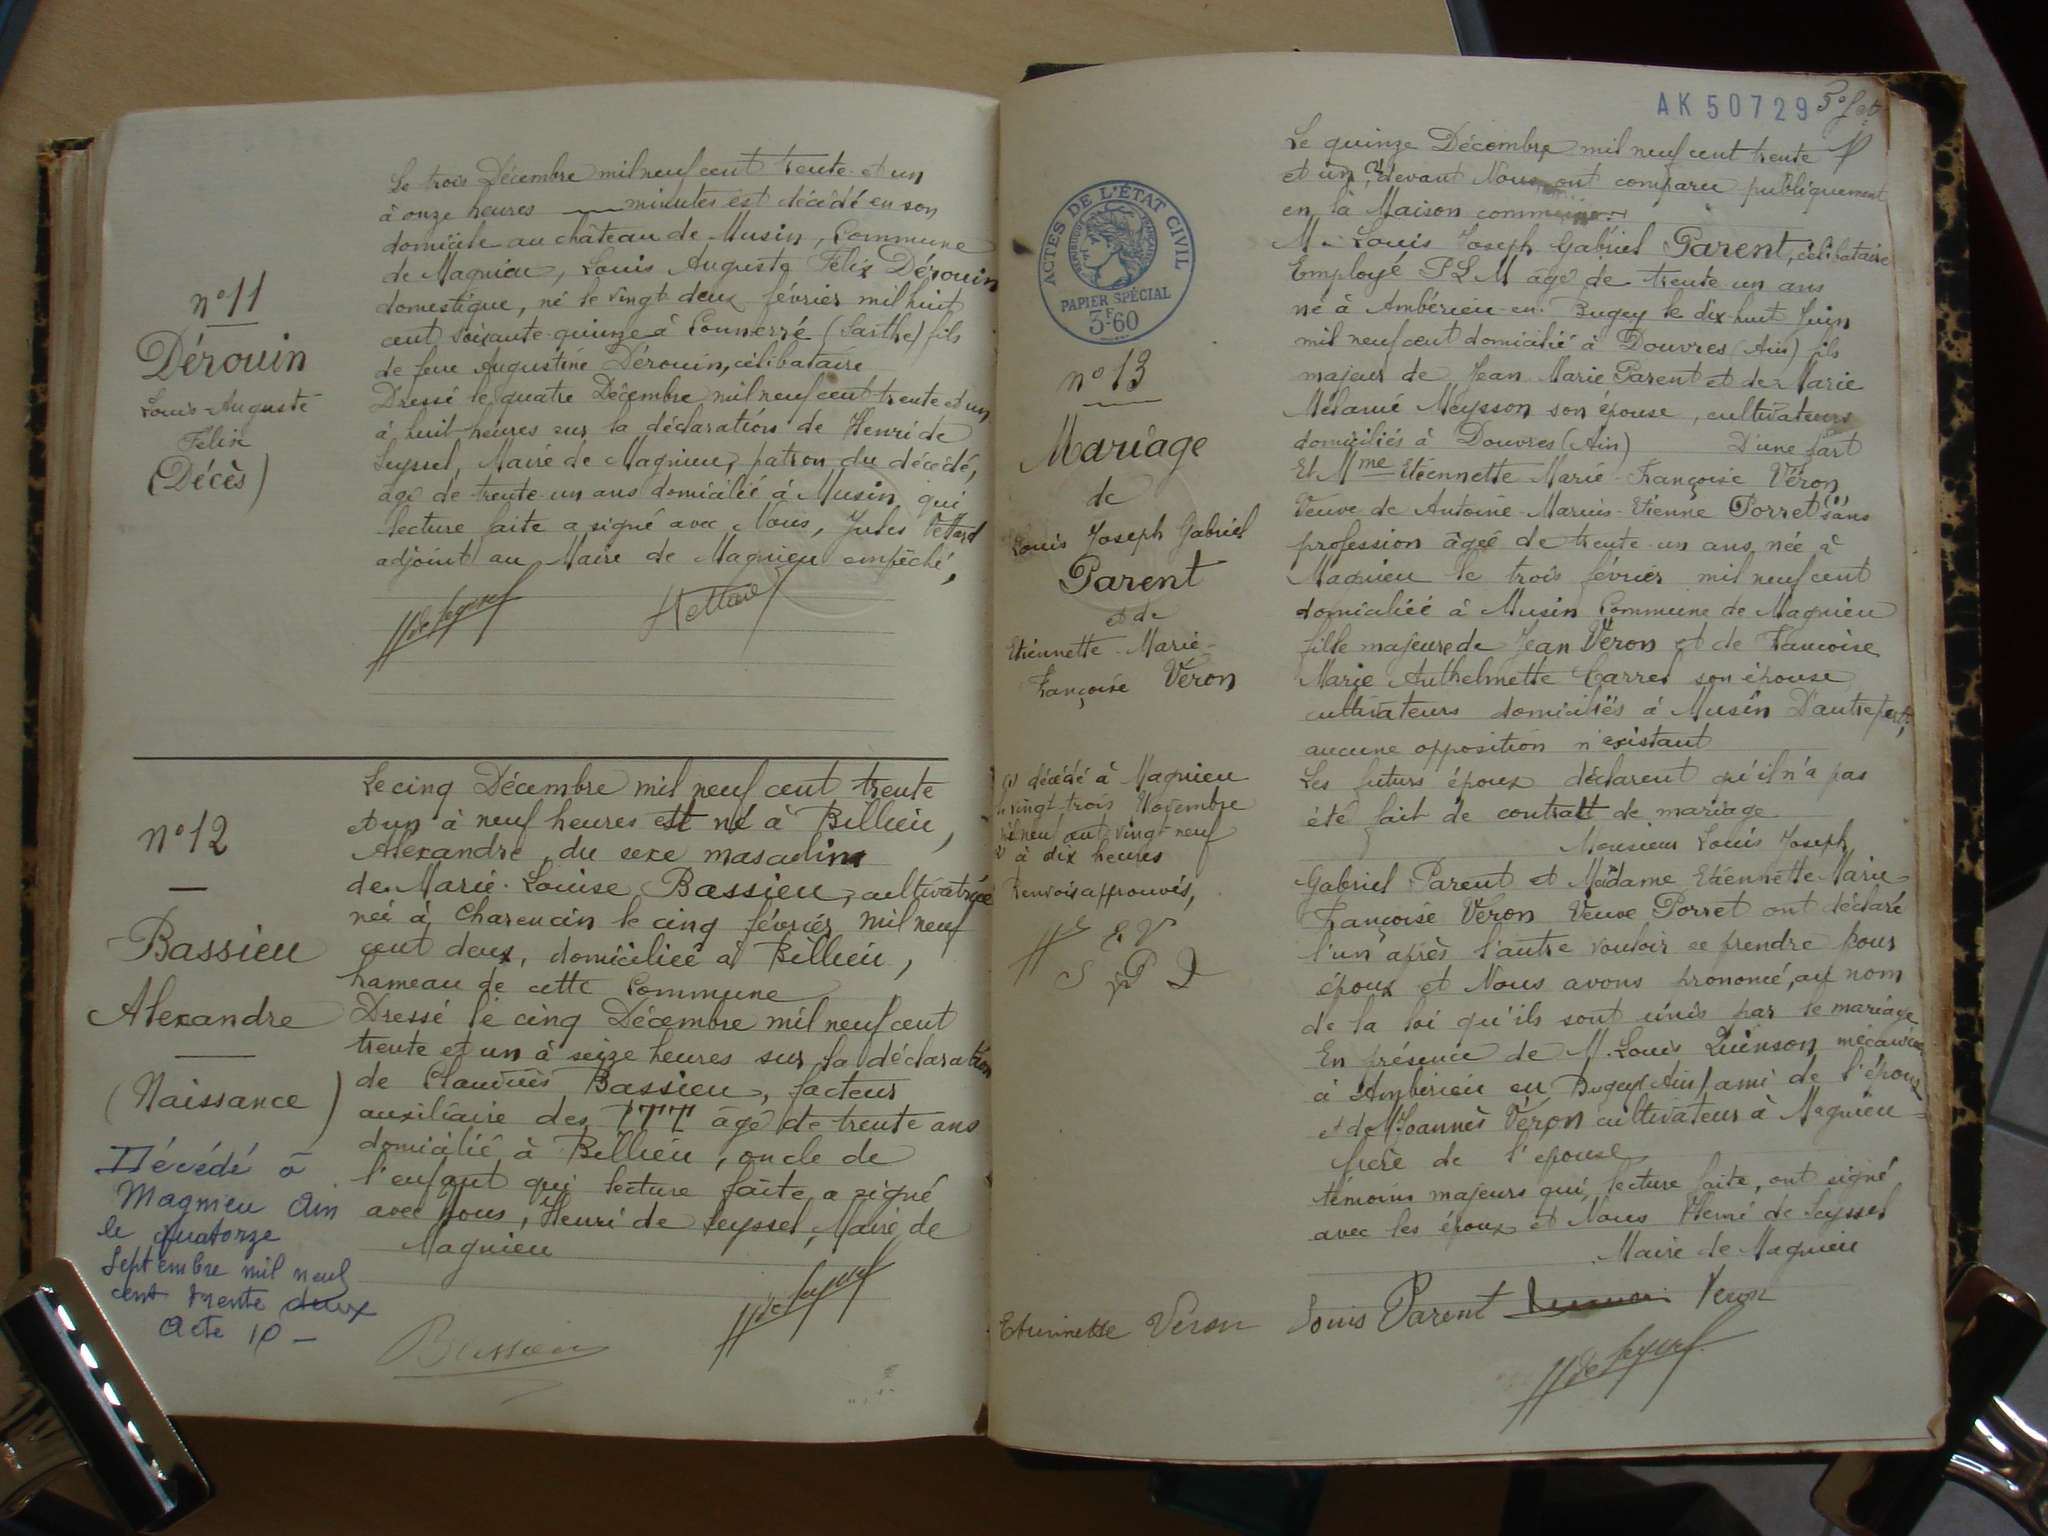 n° 11
Dérouin
Louis-Auguste
Félix
(Décès)
Le trois Décembre mil neuf cent trente et un
à onze heures minutes est décédé en son
domicile au château de Musin, Commune
de Magnieu, Louis Auguste Félix Dérouin
domestique, né le vingt deux février mil huit
cent soixante-quinze à Connerré (Sarthe) fils
de feue Augustine Dérouin, célibataire
Dressé le quatre Décembre mil neuf cent trente et un
à huit heures sur la déclaration de Henri de
Seyssel, Maire de Magnieu, patron du décédé,
âgé de trente-un ans domicilié à Musin, qui
lecture faite a signé avec Nous, Jules Vettard
adjoint au Maire de Magnieu empêché,
H de Seyssel Vettard
n° 12
Bassieu
Alexandre
(Naissance)
Décédé à
Magnieu Ain
le quatorze
Septembre mil neuf
cent trente deux
Acte 10 -
Le cinq Décembre mil neuf cent trente
et un à neuf heures est né à Billieu,
Alexandre, du sexe masculin
de Marie-Louise Bassieu, cultivatrice
née à Charencin le cinq février mil neuf
cent deux, domiciliée à Billieu,
hameau de cette Commune
Dressé le cinq Décembre mil neuf cent
trente et un à seize heures sur la déclaration
de Claudius Bassieu, facteur
auxiliaire des PTT âgé de trente ans
domicilié à Billieu, oncle de
l'enfant qui lecture faite a signé
avec Nous, Henri de Seyssel, Maire de
Magnieu
H de Seyssel
Bassieu
AK 50729
ACTES DE L'ÉTAT CIVIL
PAPIER SPÉCIAL
3F60
n° 13
Mariage
de
Louis Joseph Gabriel
Parent
et de
Etiennette-Marie-
Françoise Véron
(1) décédé à Magnieu
le vingt-trois Novembre
mil neuf cent vingt-neuf
(2) à dix heures
Renvois approuvés,
E. V
S P Q
Le quinze Décembre mil neuf cent trente
et un (2) devant Nous ont comparu publiquement
en la Maison commune
M. Louis Joseph Gabriel Parent, célibataire
Employé P L M âgé de trente-un ans
né à Ambérieu-en-Bugey le dix-huit Juin
mil neuf cent domicilié à Douvres (Ain) fils
majeur de Jean Marie Parent et de Marie
Mélanie Meysson son épouse, cultivateurs
domiciliés à Douvres (Ain) D'une part
Et Mme Etiennette-Marie-Françoise Véron
Veuve de Antoine-Marius-Etienne Porret (1) sans
profession âgée de trente-un ans née à
Magnieu le trois février mil neuf cent
domiciliée à Musin Commune de Magnieu
fille majeure de Jean Véron et de Françoise
Marie Anthelmette Carrel son épouse
cultivateurs domiciliés à Musin D'autre part,
aucune opposition n'existant
Les futurs époux déclarent qu'il n'a pas
été fait de contrat de mariage
Monsieur Louis Joseph
Gabriel Parent et Madame Etiennette-Marie-
Françoise Véron Veuve Porret ont déclaré
l'un après l'autre vouloir se prendre pour
époux et Nous avons prononcé, au nom
de la loi qu'ils sont unis par le mariage
En présence de M. Louis Quinson mécanicien
à Ambérieu en Bugey (Ain) ami de l'époux
et de M. Joannès Véron cultivateur à Magnieu-
frère de l'épouse
témoins majeurs qui, lecture faite, ont signé
avec les époux et Nous Henri de Seyssel
Maire de Magnieu
Etiennette Veron Louis Parent Veron
H de Seyssel